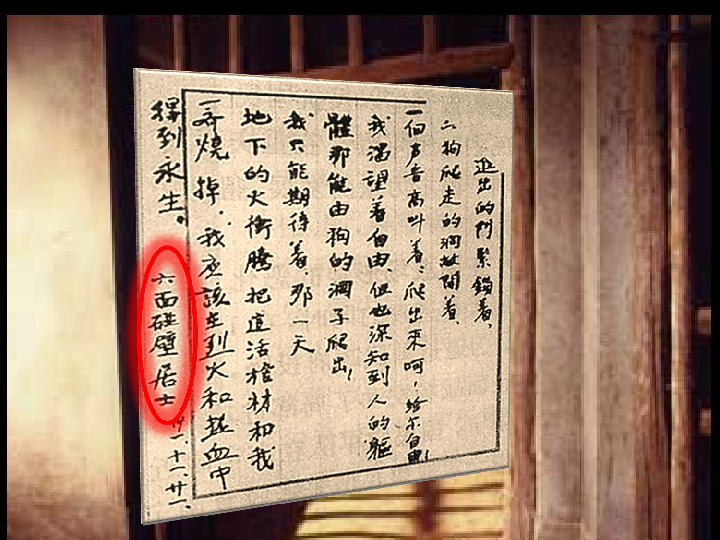 進出的門緊鎖着、
为狗爬走的洞敞開着、
一個声音高叫着：爬出來呵，给尔自由！
我渴望着自由，但也深知到人的軀
體那能由狗的洞子爬出！
我只能期待着，那一天
地下的火衝騰，把這活棺材和我
一齊燒掉，我应該在烈火和热血中
得到永生。
六面碰壁居士 卅一、十一、廿一、